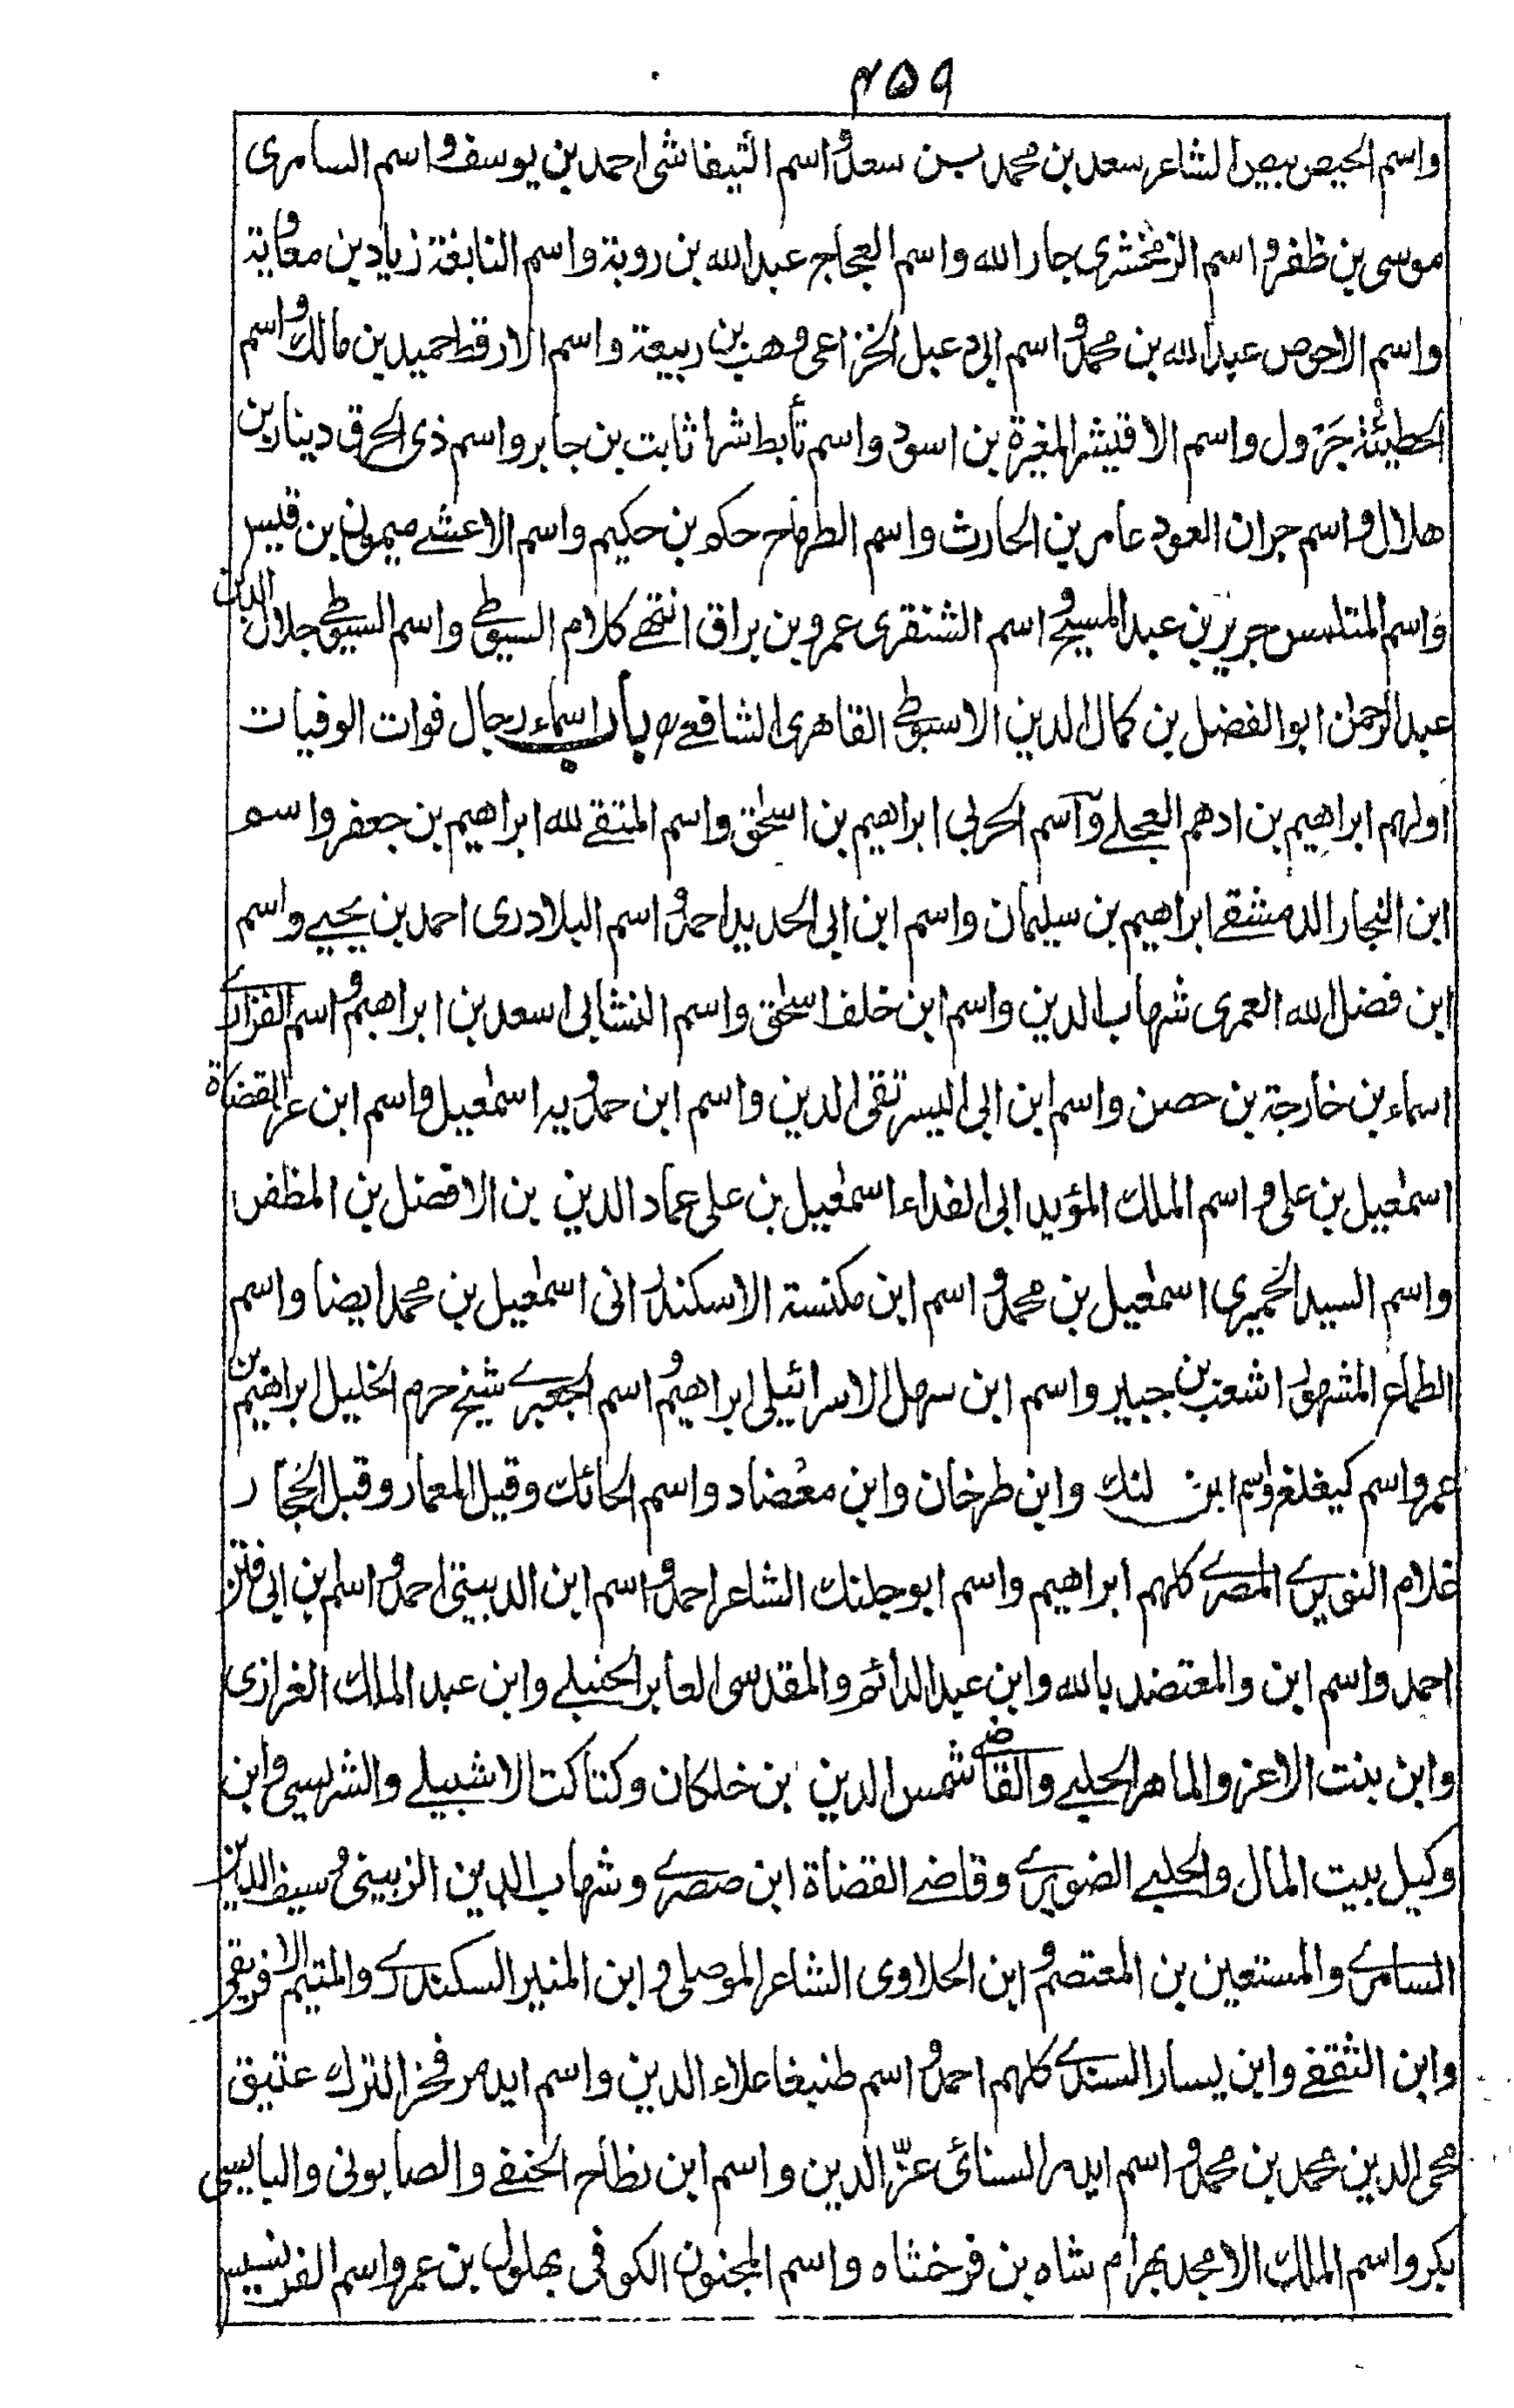 ۴۵۹
واسم الحیص بیص الشاعر سعد بن محمد بسن سعد و اسم التیفاشی احمد بن یوسف و اسم السامری
موسی بن ظفر و اسم الزمخشری جار الله و اسم العجاج عبدالله بن روبة و اسم النابغة زیاد بن معاویة
و اسم الاحوص عبدالله بن محمد و اسم ابی دعبل الخزاعی وهب بن ربیعة و اسم الارقط حمید بن مالک و اسم
الحطیئة جَرْول و اسم الاقیشر المغیرة بن اسود و اسم تأبط شرا ثابت بن جابر و اسم ذی الخرق دینار بن
هلال و اسم جران العود عامر بن الحارث و اسم الطرماح حکم بن حکیم و اسم الاعشے میمون بن قیس
و اسم المتلمس جریر بن عبد المسیح و اسم الشنفری عمرو بن براق انتهے کلام السیوطے و اسم السیوطے جلال الدین
عبد الرحمٰن ابو الفضل بن کمال الدین الاسیوطے القاهری الشافعے باب اسماء رجال فوات الوفیات
اولهم ابراهیم بن ادهم العجلے و اسم الحربی ابراهیم بن اسحٰق و اسم المتقے لله ابراهیم بن جعفر و اسم
ابن النجار الدمشقے ابراهیم بن سلیمان و اسم ابن ابی الحدید احمد و اسم البلادری احمد بن یحییے و اسم
ابن فضل الله العمری شهاب الدین و اسم ابن خلف اسحٰق و اسم النشابی اسعد بن ابراهیم و اسم الفزارے
اسماء بن خارجة بن حصن و اسم ابن ابی الیسر تقی الدین و اسم ابن حمدویه اسمٰعیل و اسم ابن عز القضاة
اسمٰعیل بن علی و اسم الملک المؤید ابی الفداء اسمٰعیل بن علی عماد الدین بن الافضل بن المظفر
و اسم السید الحمیری اسمٰعیل بن محمد و اسم ابن مکنسة الاسکندرانی اسمٰعیل بن محمد ایضا و اسم
الطماع المشهور اشعب بن جبیر و اسم ابن سهل الاسرائیلی ابراهیم و اسم الجعبرے شیخ حرم الخلیل ابراهیم بن
عمر و اسم کیغلغ و اسم ابن لنک و ابن طرخان و ابن معضاد و اسم الحائک و قیل المعمار و قیل الحجار
غلام النویرے المصرے کلهم ابراهیم و اسم ابو جلنک الشاعر احمد و اسم ابن الدبیثی احمد و اسلم بن ابی فتن
احمد و اسم ابن و المعتضد بالله و ابن عبد الدائم و المقدسی العابر الحنبلے و ابن عبد الملک العزازی
و ابن بنت الاعز و الماهر الحلبے و القاضے شمس الدین بن خلکان و کتاکت الاشبیلے و الشریسی و ابن
وکیل بیت المال و الحلبے الضویرے و قاضے القضاة ابن صصرے و شهاب الدین الزبینی و سیف الدین
السامرے و المستعین بن المعتصم و ابن الحلاوی الشاعر الموصلی و ابن المنیر السکندرے و المتیم الافریقی
و ابن الثقفے و ابن یسار السندے کلهم احمد و اسم طنبغا علاء الدین و اسم ایدمر فخر الترک عتیق
محی الدین محمد بن محمد و اسم ایدمر السنائی عزّ الدین و اسم ابن نطاح الحنفے و الصابونی و الیابسی
بکر و اسم الملک الامجد بهرام شاه بن فرخشاه و اسم المجنون الکوفی بهلول بن عمر و اسم الفرنسیس